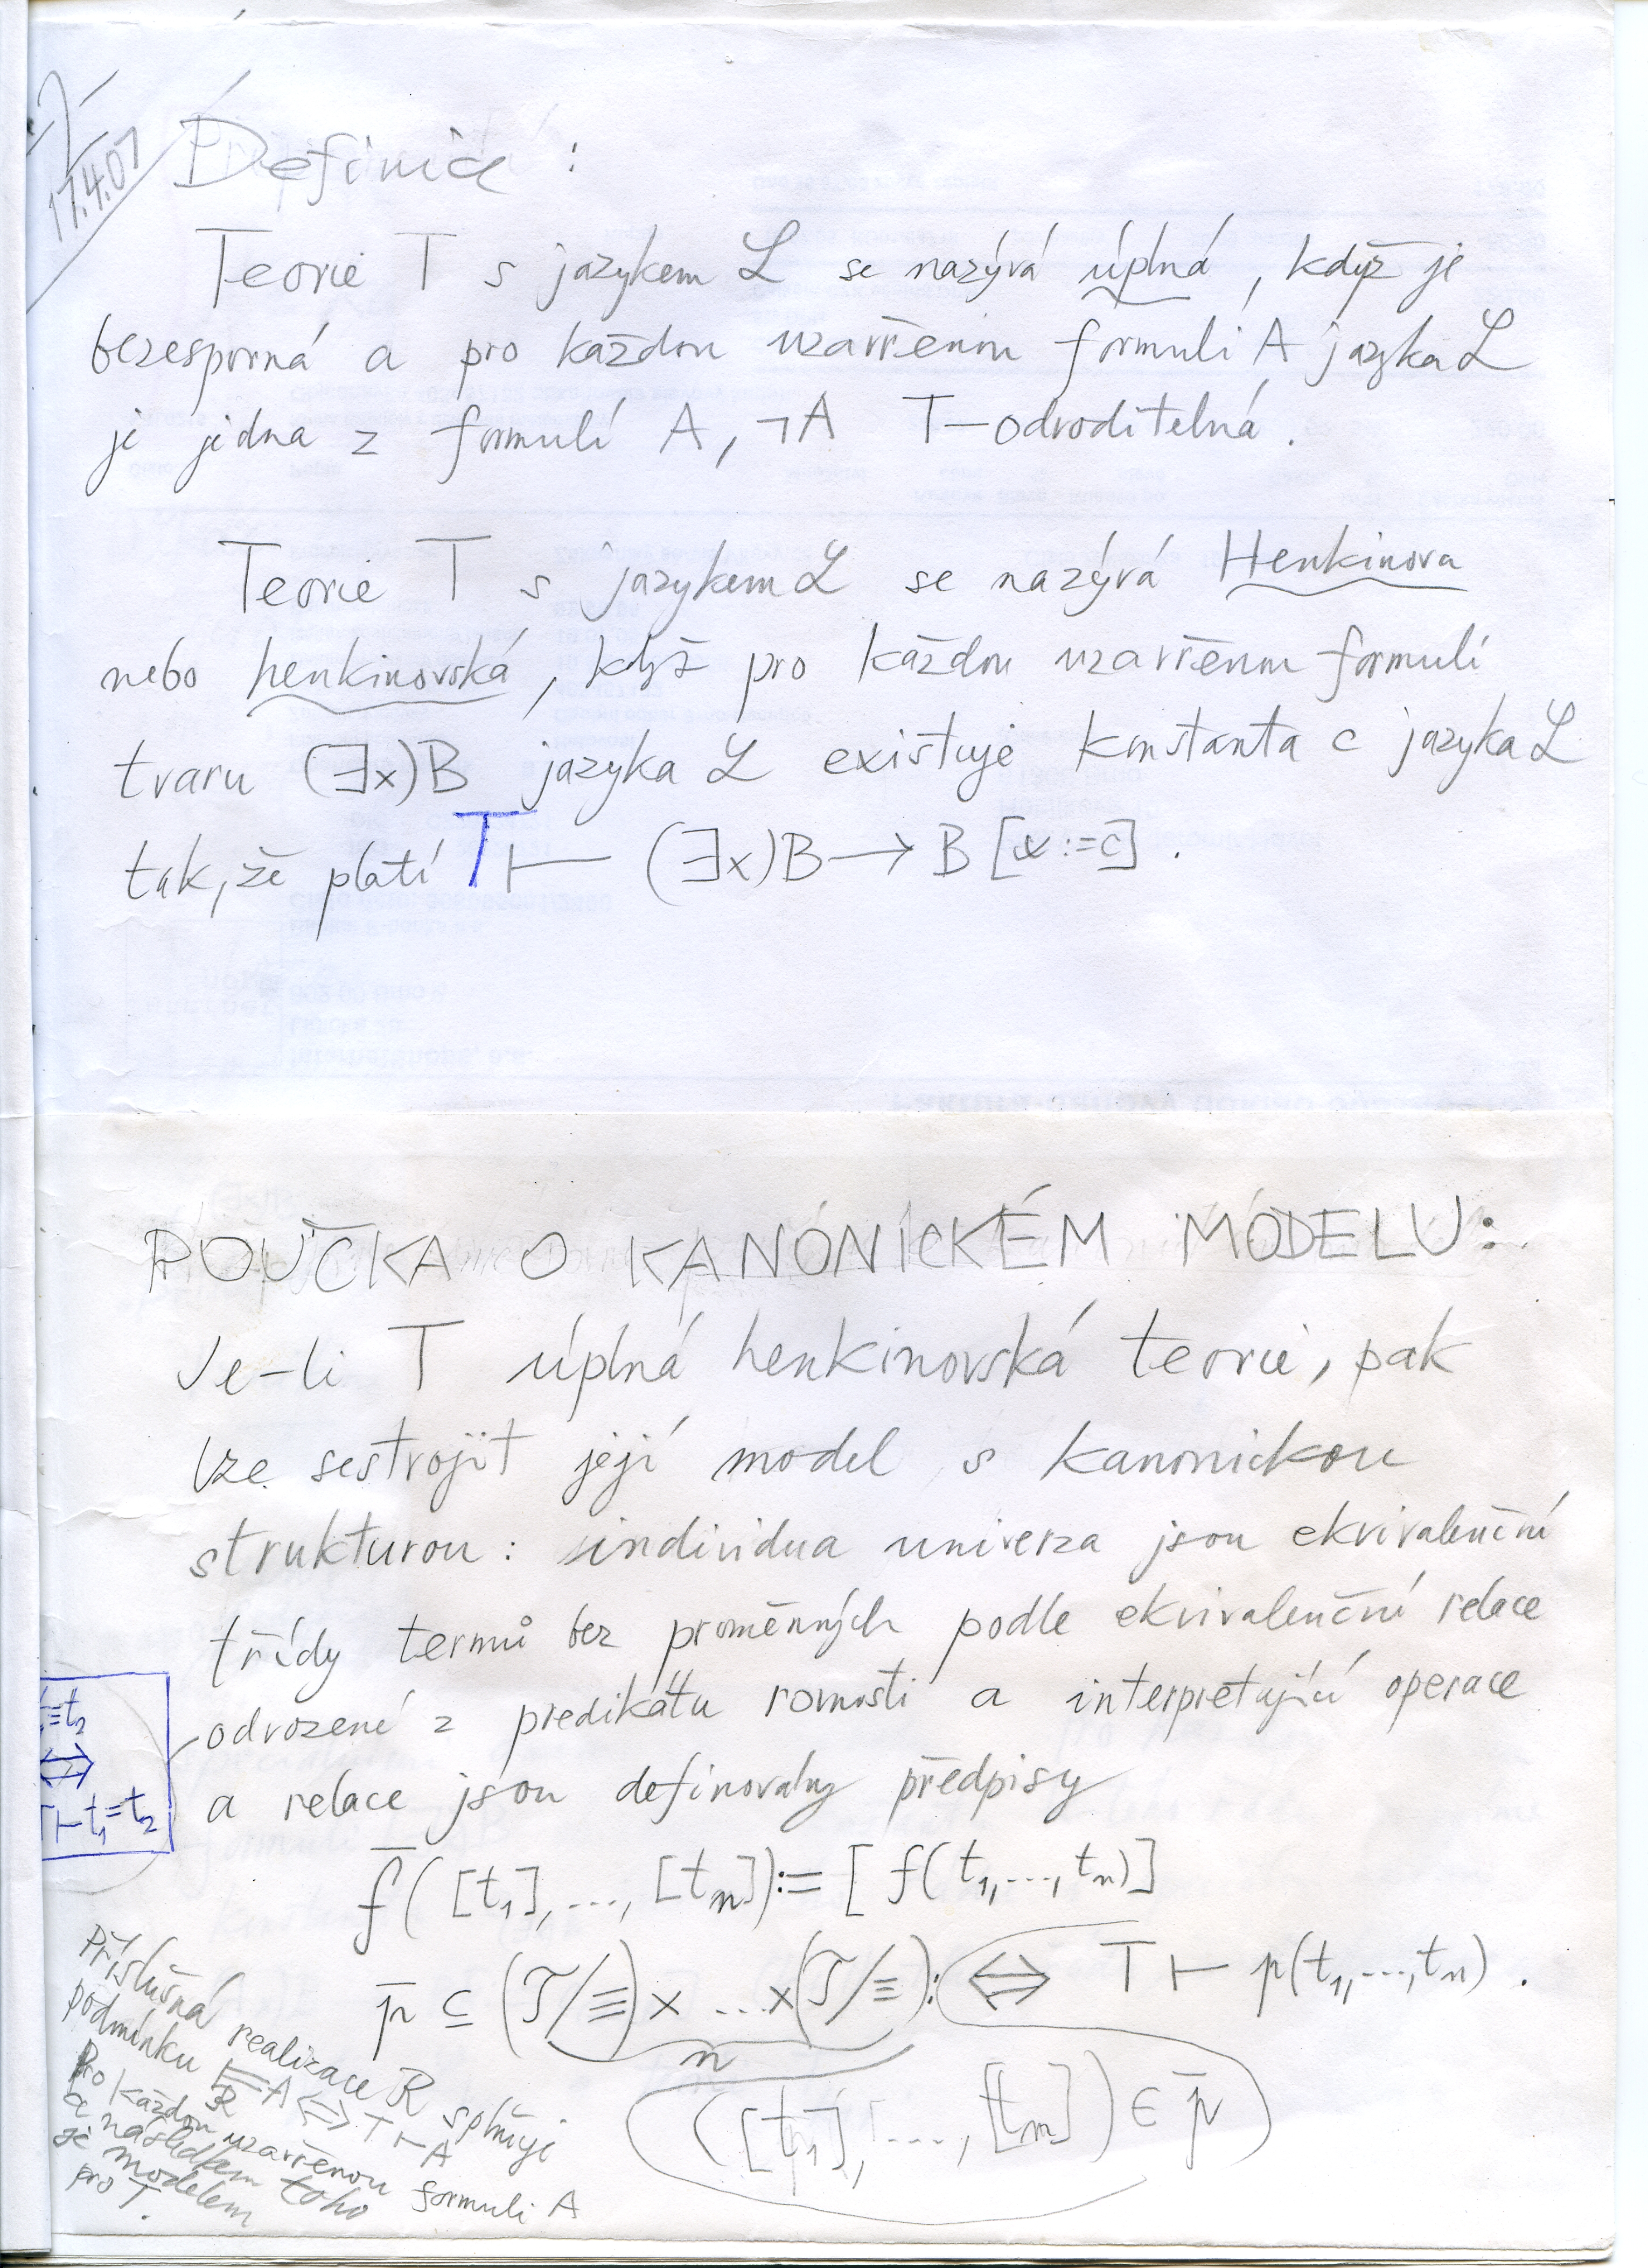 17.4.07
Definice:
Teorie T s jazykem ℒ se nazývá úplná, když je
bezesporná a pro každou uzavřenou formuli A jazyka ℒ
je jedna z formulí A, ¬A T-odvoditelná.
Teorie T s jazykem ℒ se nazývá Henkinova
nebo henkinovská, když pro každou uzavřenou formuli
tvaru (∃x)B jazyka ℒ existuje konstanta c jazyka ℒ
tak, že platí T ⊢ (∃x)B → B[x:=c].
POUČKA O KANONICKÉM MODELU:
Je-li T úplná henkinovská teorie, pak
lze sestrojit její model s kanonickou
strukturou: individua univerza jsou ekvivalenční
třídy termů bez proměnných podle ekvivalenční relace
odvozené z predikátu rovnosti a interpretující operace
a relace jsou definovány předpisy
≡t₂
⇔
T⊢t₁=t₂
f̄([t₁],…,[tₙ]):=[f(t₁,…,tₙ)]
p̄ ⊆ (𝒯/≡)×…×(𝒯/≡): ⇔ T ⊢ p(t₁,…,tₙ).
n
([t₁],…,[tₙ]) ∈ p̄
Příslušná realizace ℛ splňuje
podmínku ⊨ℛ A ⇔ T ⊢ A
Pro každou uzavřenou formuli A
a následkem toho
je modelem
pro T.